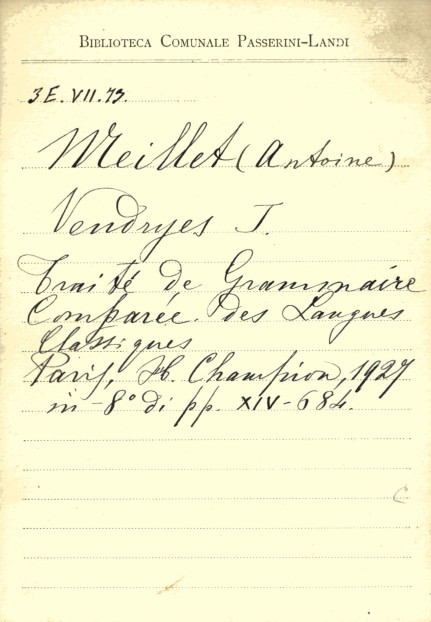 BIBLIOTECA COMUNALE PASSERINI-LANDI
3E.VII.73.
Meillet (Antoine)
Vendryes J.
Traité de Grammaire
Comparée des Langues
Classiques
Paris, H. Champion, 1927
in-8° di pp. XIV-684.
C